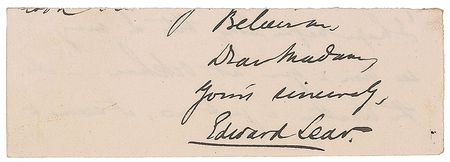 Believe me
Dear Madam,
Yours sincerely,
Edward Lear.